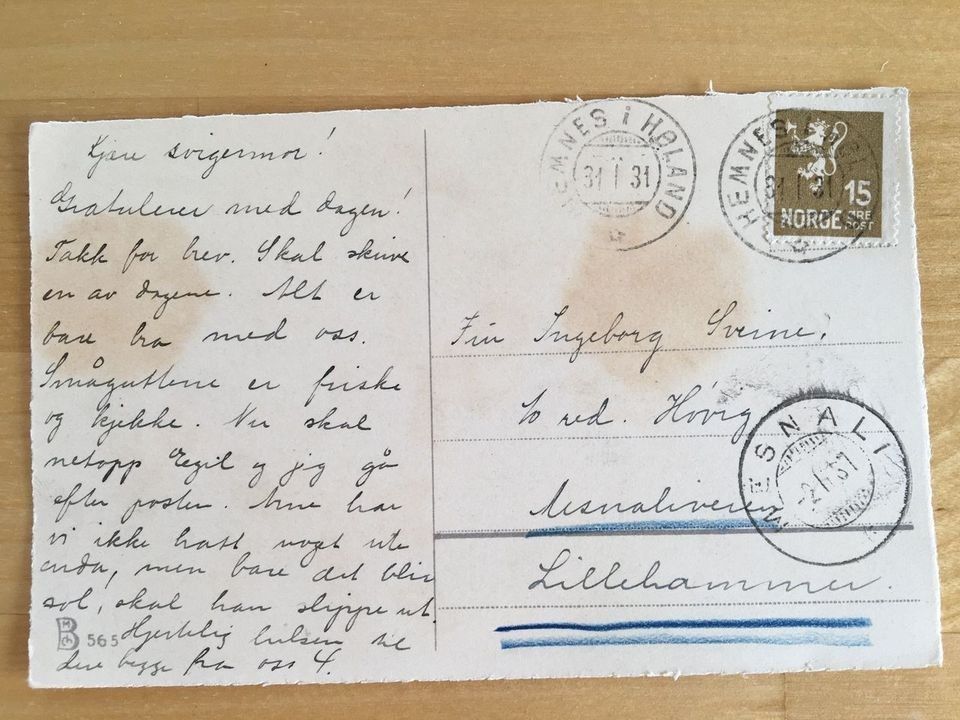 Kjære svigermor!
Gratulerer med dagen!
Takk for brev. Skal skrive
en av dagene. Alt er
bare bra med oss.
Småguttene er friske
og kjekke. Nu skal
netopp Egil og jeg gå
efter posten. Arne har
vi ikke hatt noget ute
enda, men bare det blir
sol, skal han slippe ut.
Hjertelig hilsen til
Dere begge fra oss 4.
B 565
HEMNES i HØLAND
31 1 31
HEMNES i HØLAND
31 1 31
15
NORGE ØRE
POST
Fru Ingeborg Sveine,
to red. Høvig
Mesnaliveien
Lillehammer.
MESNALI
-2 31